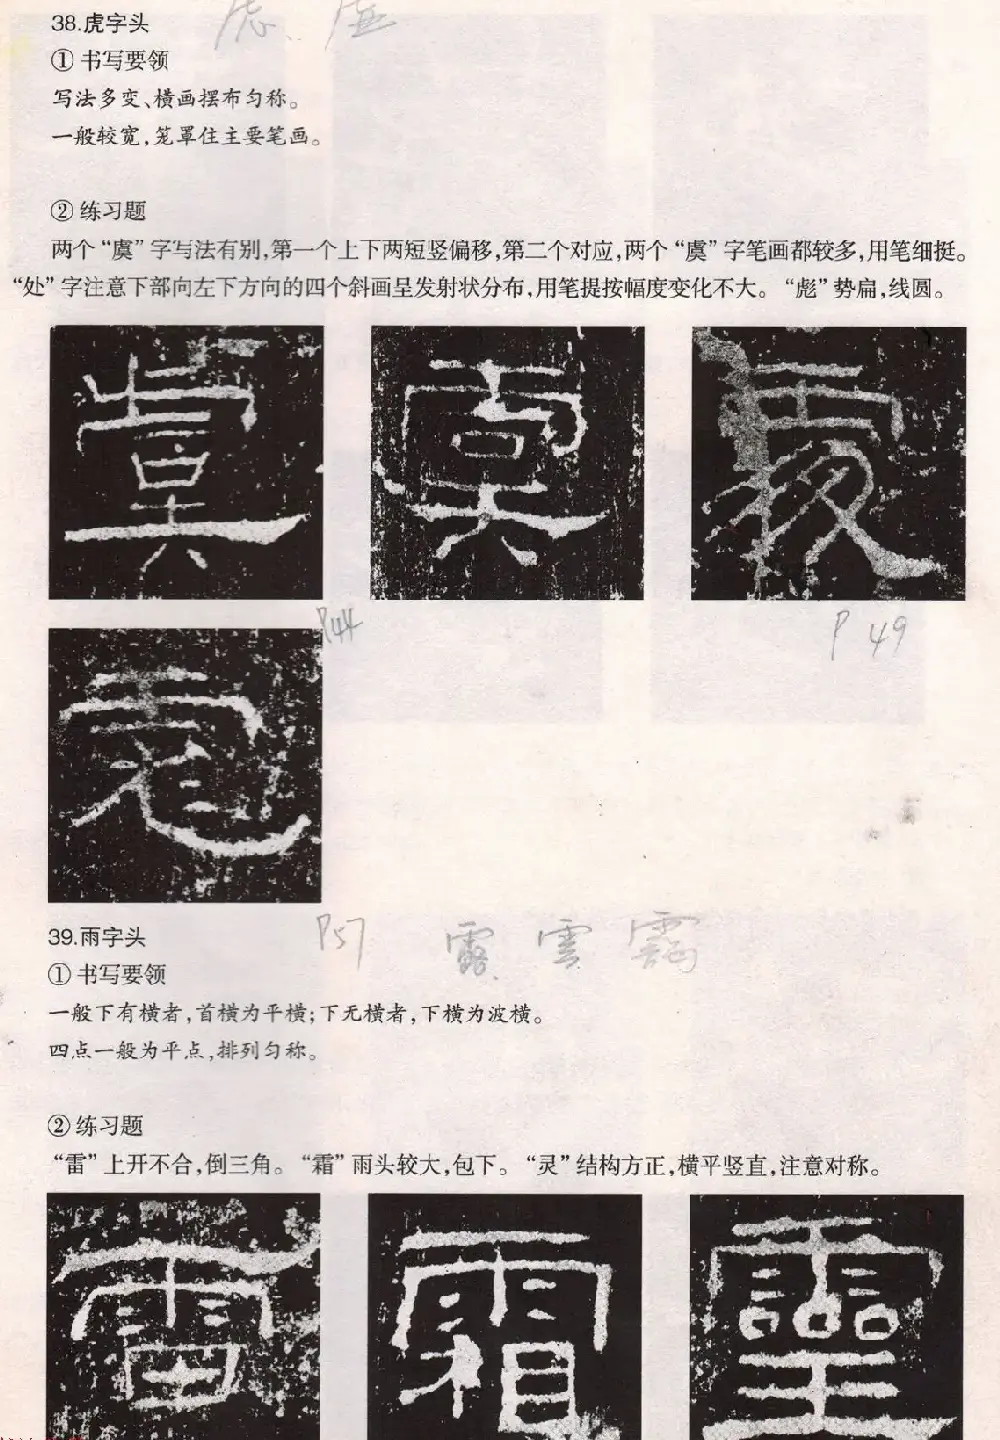 38.虎字头
① 书写要领
写法多变、横画摆布匀称。
一般较宽,笼罩住主要笔画。
② 练习题
两个“虞”字写法有别,第一个上下两短竖偏移,第二个对应,两个“虞”字笔画都较多,用笔细挺。
“处”字注意下部向左下方向的四个斜画呈发射状分布,用笔提按幅度变化不大。“彪”势扁,线圆。
虞 虞 處
P44
P 49
彪
39.雨字头
P57 露 雲
① 书写要领
一般下有横者,首横为平横;下无横者,下横为波横。
四点一般为平点,排列匀称。
② 练习题
“雷”上开不合,倒三角。“霜”雨头较大,包下。“灵”结构方正,横平竖直,注意对称。
雷 霜 靈